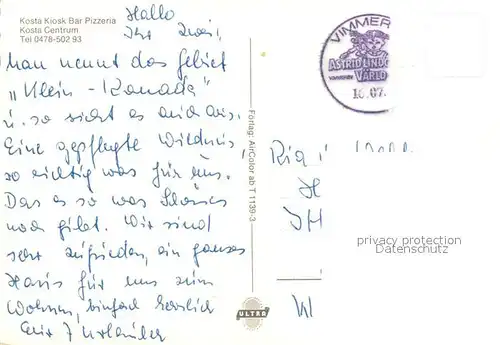 Kosta Kiosk Bar Pizzeria
Kosta Centrum
Tel 0478-502 93
Hallo
Ihr zwei,
man nennt das Gebiet
„Klein - Kanada"
u. so sieht es auch aus,
Eine gepflegte Wildnis,
so richtig was für uns.
Das es so was Schönes
noch gibt. Wir sind
sehr zufrieden, ein ganzes
Haus für uns zum
Wohnen, einfach herrlich
Eure 7 Urlauber
Förlag: AriColor ab T 1139-3
VIMMER
ASTRID LIND
VÄRLD
16.07.
privacy protection
Datenschutz
ULTRA